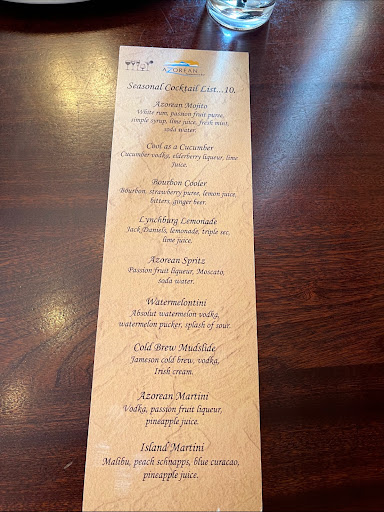 AZOREAN
Seasonal Cocktail List...10.
Azorean Mojito
White rum, passion fruit puree,
simple syrup, lime juice, fresh mint,
soda water.
Cool as a Cucumber
Cucumber vodka, elderberry liqueur, lime
Juice.
Bourbon Cooler
Bourbon, strawberry puree, lemon juice,
bitters, ginger beer.
Lynchburg Lemonade
Jack Daniels, lemonade, triple sec,
lime juice.
Azorean Spritz
Passion fruit liqueur, Moscato,
soda water.
Watermelontini
Absolut watermelon vodka,
watermelon pucker, splash of sour.
Cold Brew Mudslide
Jameson cold brew, vodka,
Irish cream.
Azorean Martini
Vodka, passion fruit liqueur,
pineapple juice.
Island Martini
Malibu, peach schnapps, blue curacao,
pineapple juice.